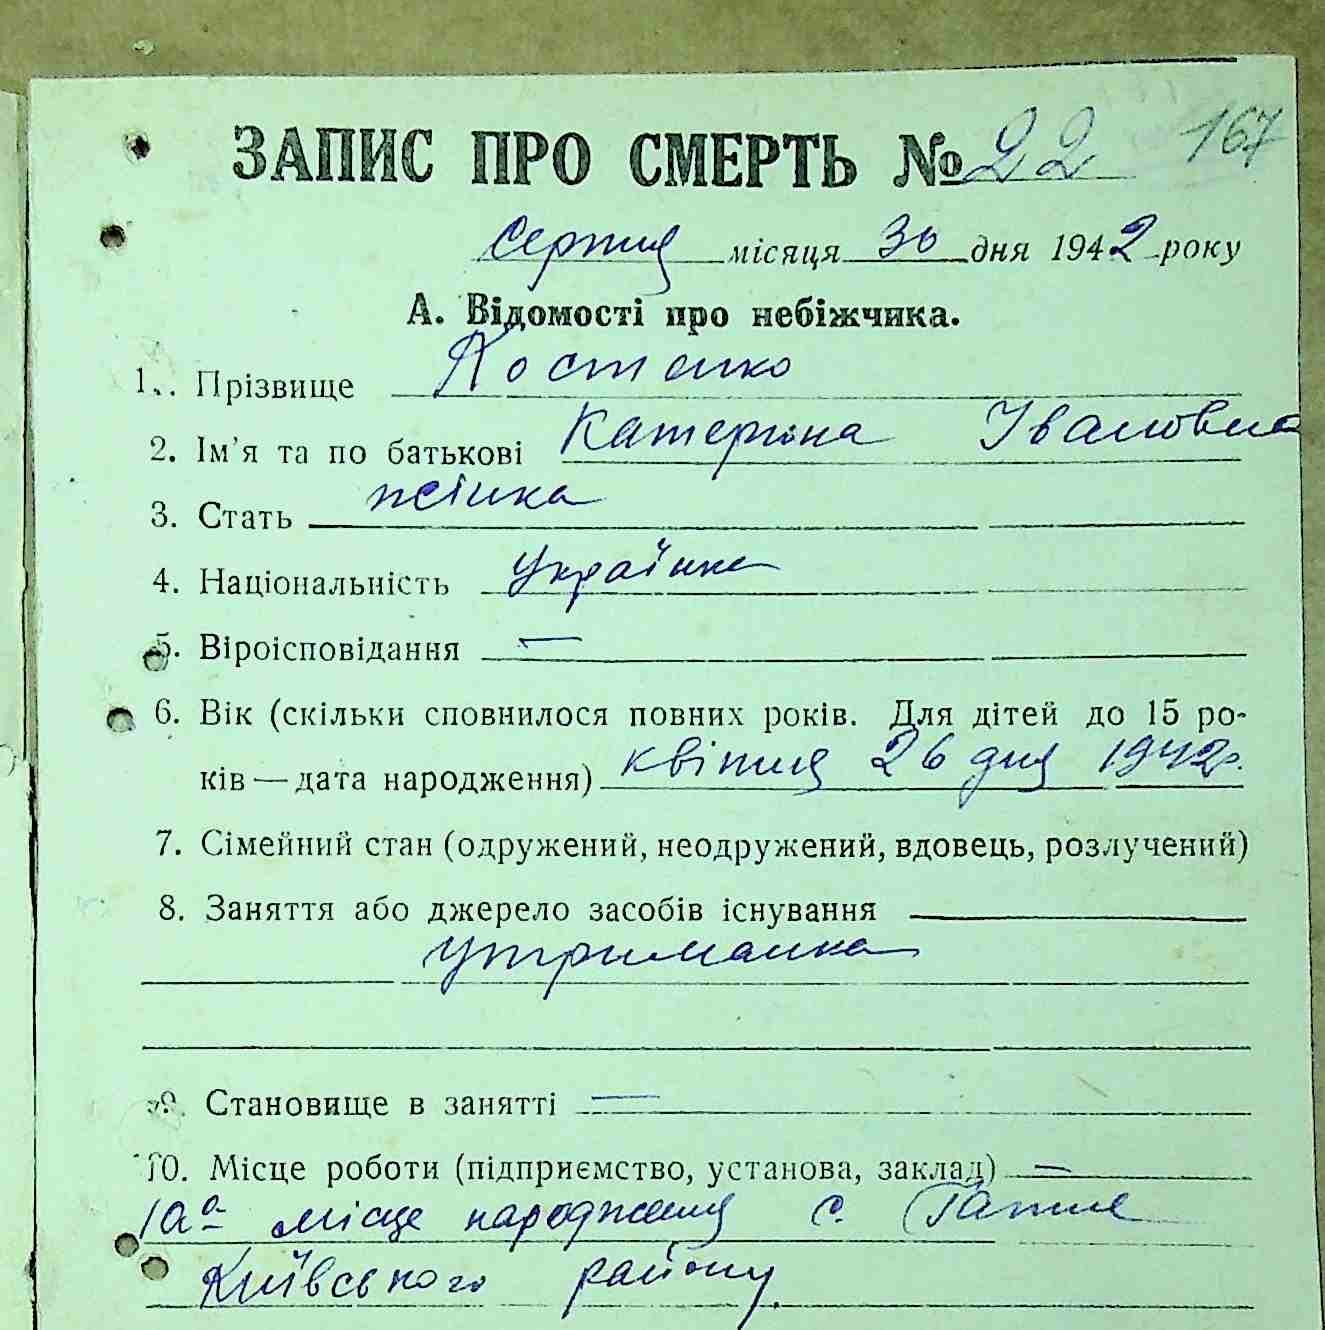 ЗАПИС ПРО СМЕРТЬ № 22 167
серпня місяця 30 дня 1942 року
А. Відомості про небіжчика.
1. Прізвище Костенко
2. Ім'я та по батькові Катерина Івановна
3. Стать жінка
4. Національність українка
5. Віроісповідання —
6. Вік (скільки сповнилося повних років. Для дітей до 15 ро-
ків — дата народження) квітня 26 дня 1942 р.
7. Сімейний стан (одружений, неодружений, вдовець, розлучений)
8. Заняття або джерело засобів існування
утриманка
9. Становище в занятті —
10. Місце роботи (підприємство, установа, заклад) —
10а місце народження с. Гатне
Київського району